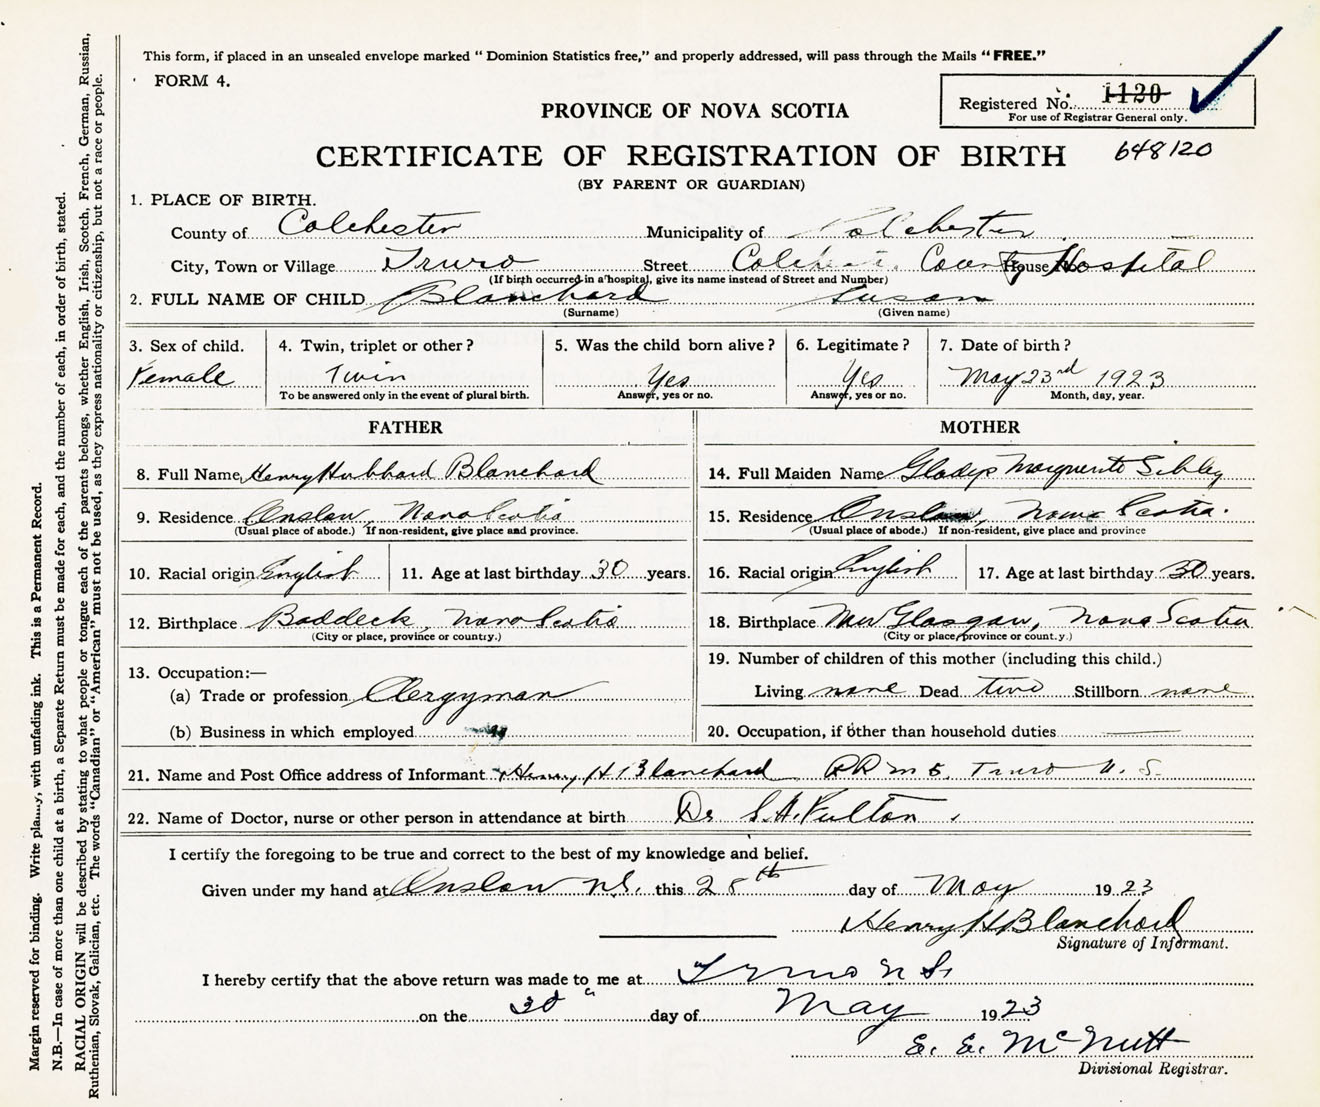 This form, if placed in an unsealed envelope marked "Dominion Statistics free," and properly addressed, will pass through the Mails "FREE."
FORM 4.
Registered No. 1120
For use of Registrar General only.
PROVINCE OF NOVA SCOTIA
CERTIFICATE OF REGISTRATION OF BIRTH 648120
(BY PARENT OR GUARDIAN)
1. PLACE OF BIRTH.
County of Colchester Municipality of Colchester
City, Town or Village Truro Street Colchester County House No. Hospital
(If birth occurred in a hospital, give its name instead of Street and Number)
2. FULL NAME OF CHILD Blanchard Susan
(Surname) (Given name)
3. Sex of child. 4. Twin, triplet or other? 5. Was the child born alive? 6. Legitimate? 7. Date of birth?
Female Twin Yes Yes May 23rd 1923
To be answered only in the event of plural birth. Answer, yes or no. Answer, yes or no. Month, day, year.
FATHER MOTHER
8. Full Name Henry Hubbard Blanchard 14. Full Maiden Name Gladys Marguerite Sibley
9. Residence Onslow, Nova Scotia 15. Residence Onslow, Nova Scotia.
(Usual place of abode.) If non-resident, give place and province. (Usual place of abode.) If non-resident, give place and province
10. Racial origin English 11. Age at last birthday 30 years. 16. Racial origin English 17. Age at last birthday 30 years.
12. Birthplace Baddeck, Nova Scotia 18. Birthplace New Glasgow, Nova Scotia
(City or place, province or country.) (City or place, province or count.y.)
13. Occupation:— 19. Number of children of this mother (including this child.)
(a) Trade or profession Clergyman Living none Dead two Stillborn none
(b) Business in which employed 20. Occupation, if other than household duties
21. Name and Post Office address of Informant Henry H Blanchard RR No 5, Truro N. S.
22. Name of Doctor, nurse or other person in attendance at birth Dr S. H. Fulton.
I certify the foregoing to be true and correct to the best of my knowledge and belief.
Given under my hand at Onslow N.S. this 28th day of May 1923
Henry H Blanchard
Signature of Informant.
I hereby certify that the above return was made to me at Truro N S.
on the 30 day of May 1923
E. E. McNutt
Divisional Registrar.
Margin reserved for binding. Write plainly, with unfading ink. This is a Permanent Record.
N.B.—In case of more than one child at a birth, a Separate Return must be made for each, and the number of each, in order of birth, stated.
RACIAL ORIGIN will be described by stating to what people or tongue each of the parents belongs, whether English, Irish, Scotch, French, German, Russian,
Ruthenian, Slovak, Galician, etc. The words "Canadian" or "American" must not be used, as they express nationality or citizenship, but not a race or people.